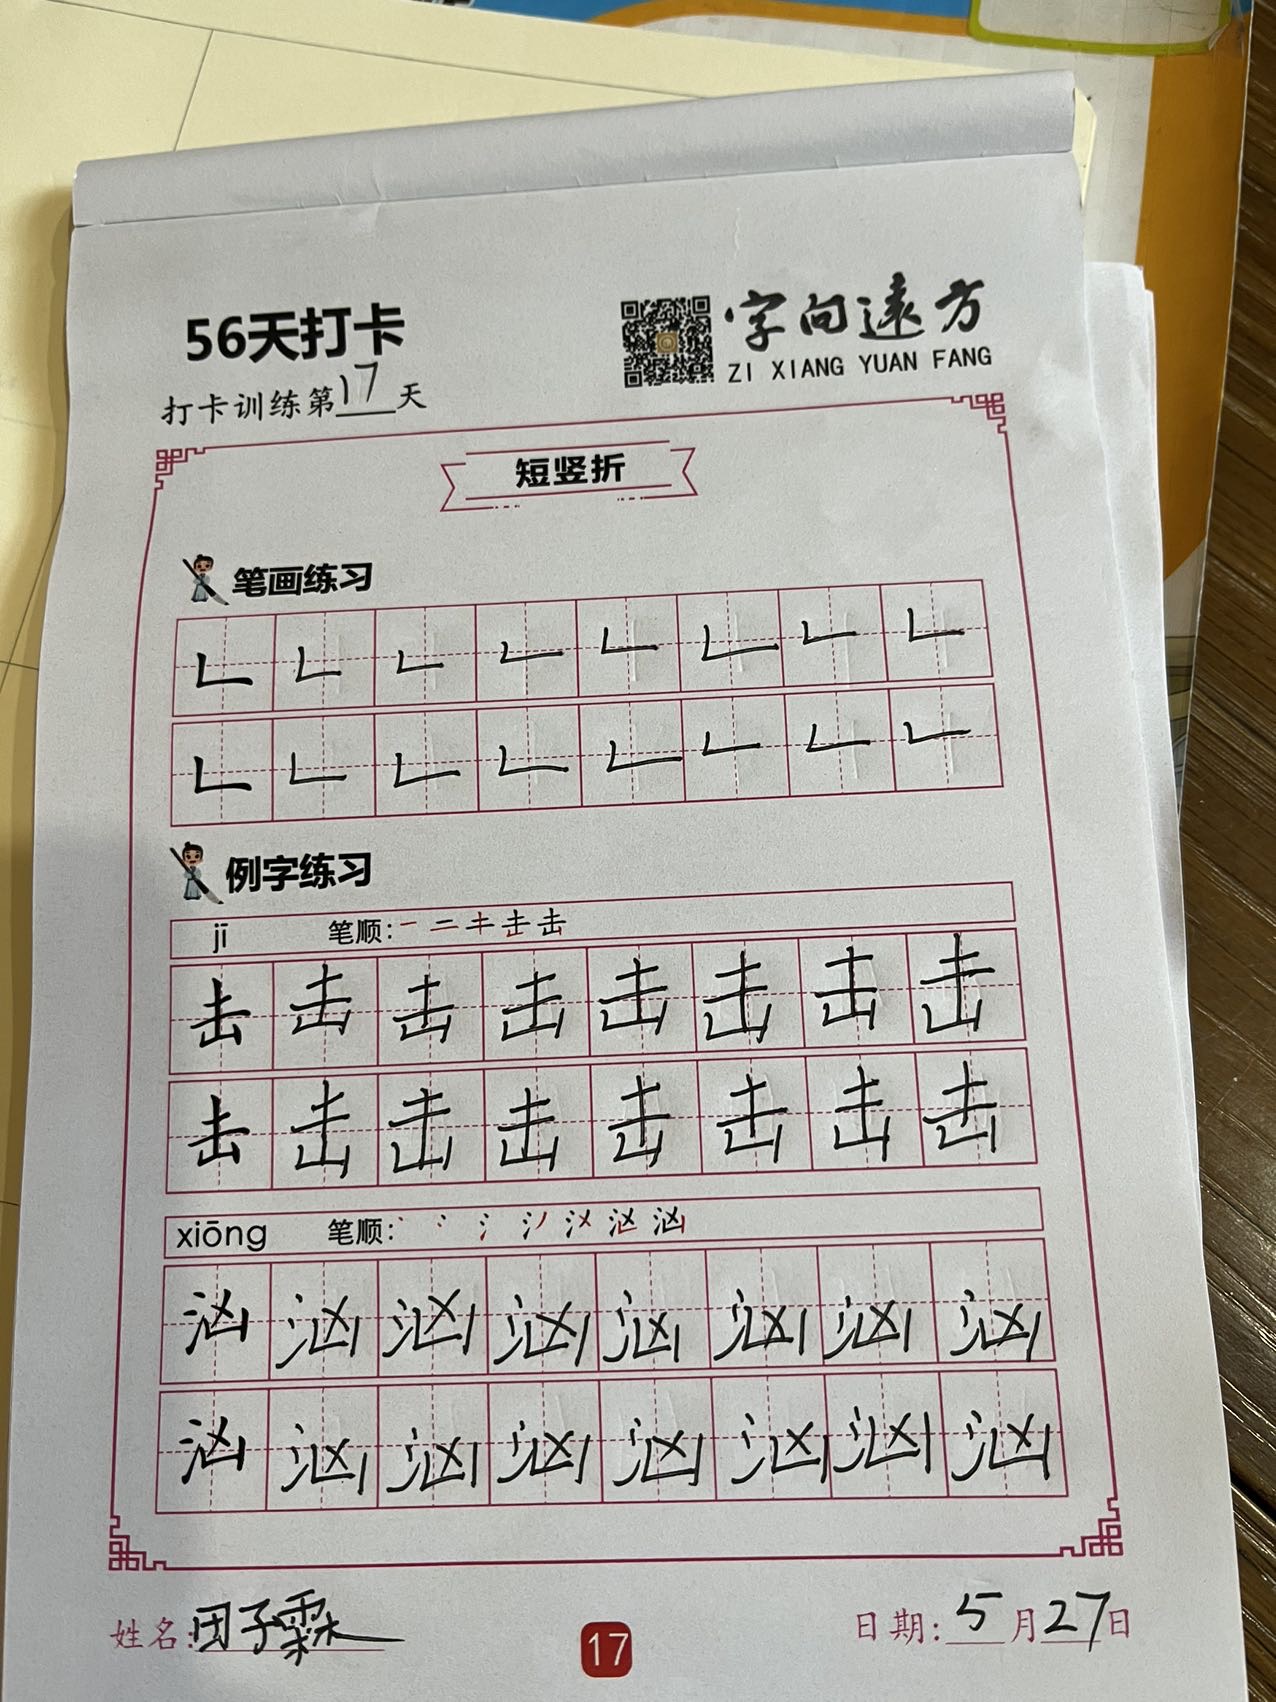 56天打卡
字向遠方
ZI XIANG YUAN FANG
打卡训练第17天
短竖折
笔画练习
𠃊 𠃊 𠃊 𠃊 𠃊 𠃊 𠃊 𠃊
𠃊 𠃊 𠃊 𠃊 𠃊 𠃊 𠃊 𠃊
例字练习
jī 笔顺: 一 二 キ 击 击
击 击 击 击 击 击 击 击
击 击 击 击 击 击 击 击
xiōng 笔顺: 丶 冫 氵 汹
汹 汹 汹 汹 汹 汹 汹 汹
汹 汹 汹 汹 汹 汹 汹 汹
姓名: 团子霖
17
日期: 5月27日